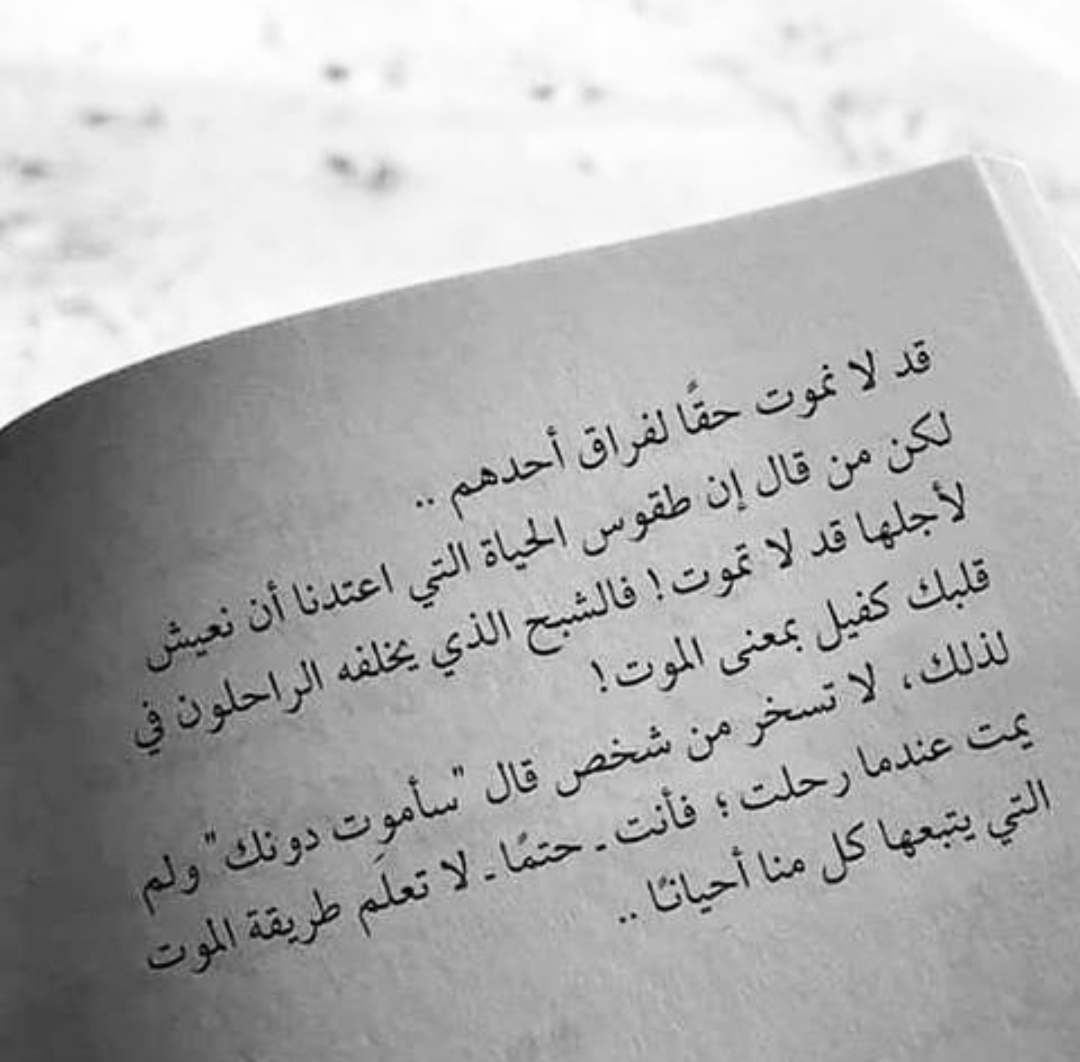 قد لا نموت حقًا لفراق أحدهم ..
لكن من قال إن طقوس الحياة التي اعتدنا أن نعيش
لأجلها قد لا تموت! فالشبح الذي يخلفه الراحلون في
قلبك كفيل بمعنى الموت!
لذلك، لا تسخر من شخص قال "سأموت دونك" ولم
يمت عندما رحلت؛ فأنت - حتمًا - لا تعلَم طريقة الموت
التي يتبعها كل منا أحيانًا ..